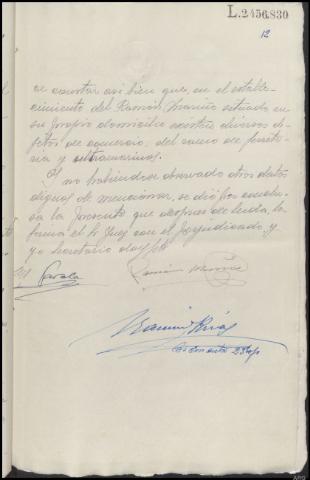 L.2456.830
12
se constar asi bien que, en el estable-
cimiento del Ramón Mariño situado en
su propio domicilio existen diversos ob-
jetos de comercio, del ramo de ferrete-
ria y ultramarinos.
Y no habiendose observado otros datos
dignos de mencionar, se dió por conclu-
sa la presente que despues de leida, la
firma el Sr Juez con el perjudicado, y
yo Secretario doy fé
Varela
Ramón Mariño
Ramón